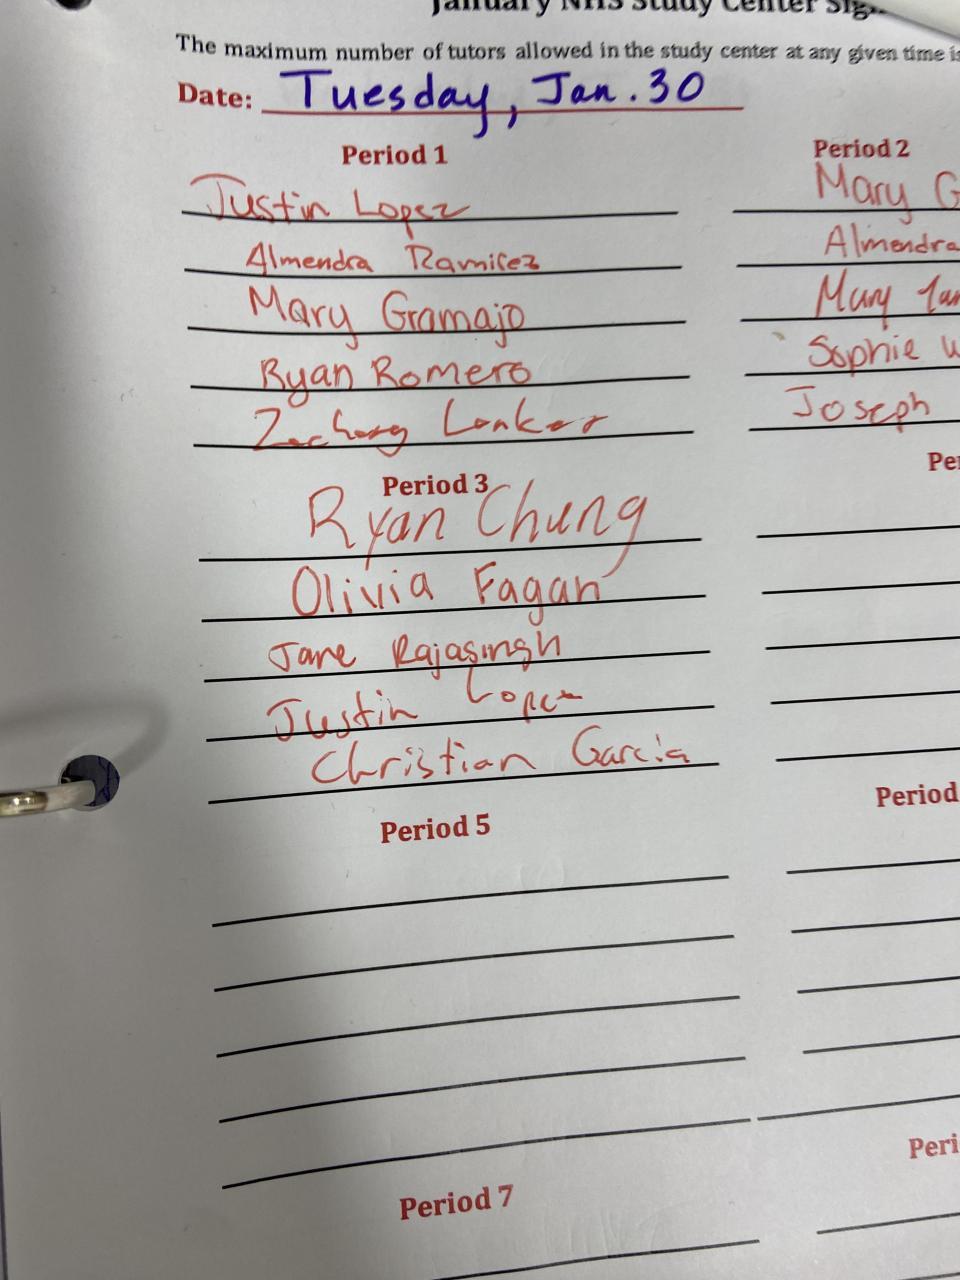 January NHS Study Center Sign
The maximum number of tutors allowed in the study center at any given time is
Date: Tuesday, Jan. 30
Period 1
Justin Lopez
Almendra Ramirez
Mary Gramajo
Ryan Romero
Zachary Lonker
Period 2
Mary G
Almendra
Mary
Sophie W
Joseph
Period 3
Ryan Chung
Olivia Fagan
Jane Rajasingh
Justin Lopez
Christian Garcia
Per
Period 5
Period
Period 7
Peri